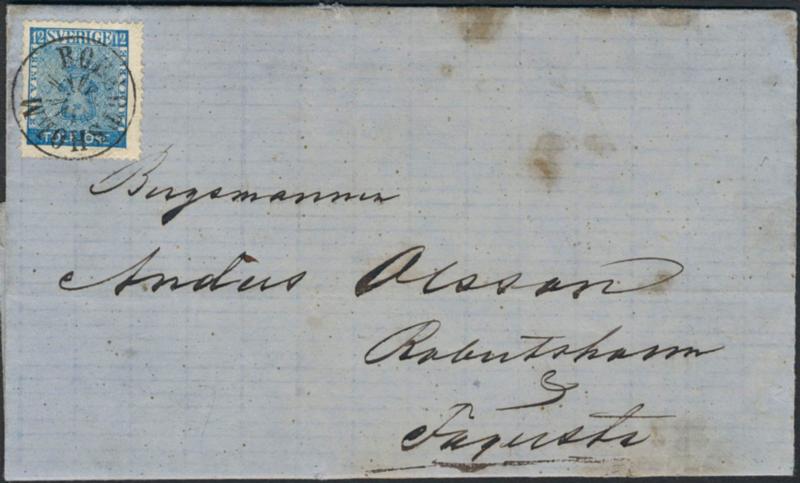 12 SVERIGE 12
TOLF ÖRE
Bergsmannen
Anders Olsson
Robertsholm
&
Fagersta